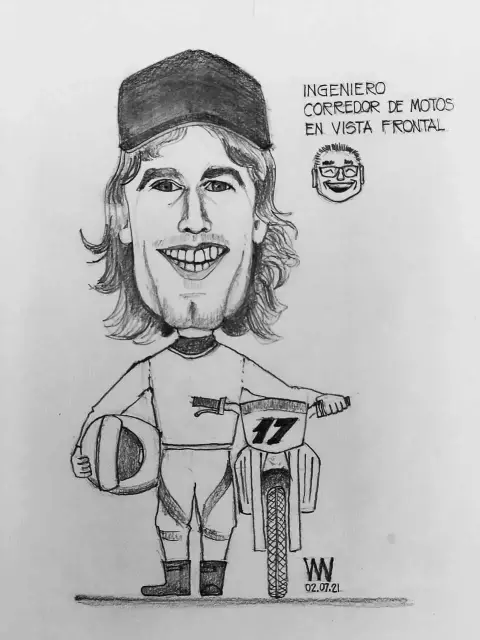 INGENIERO
CORREDOR DE MOTOS
EN VISTA FRONTAL
17
02.07.21